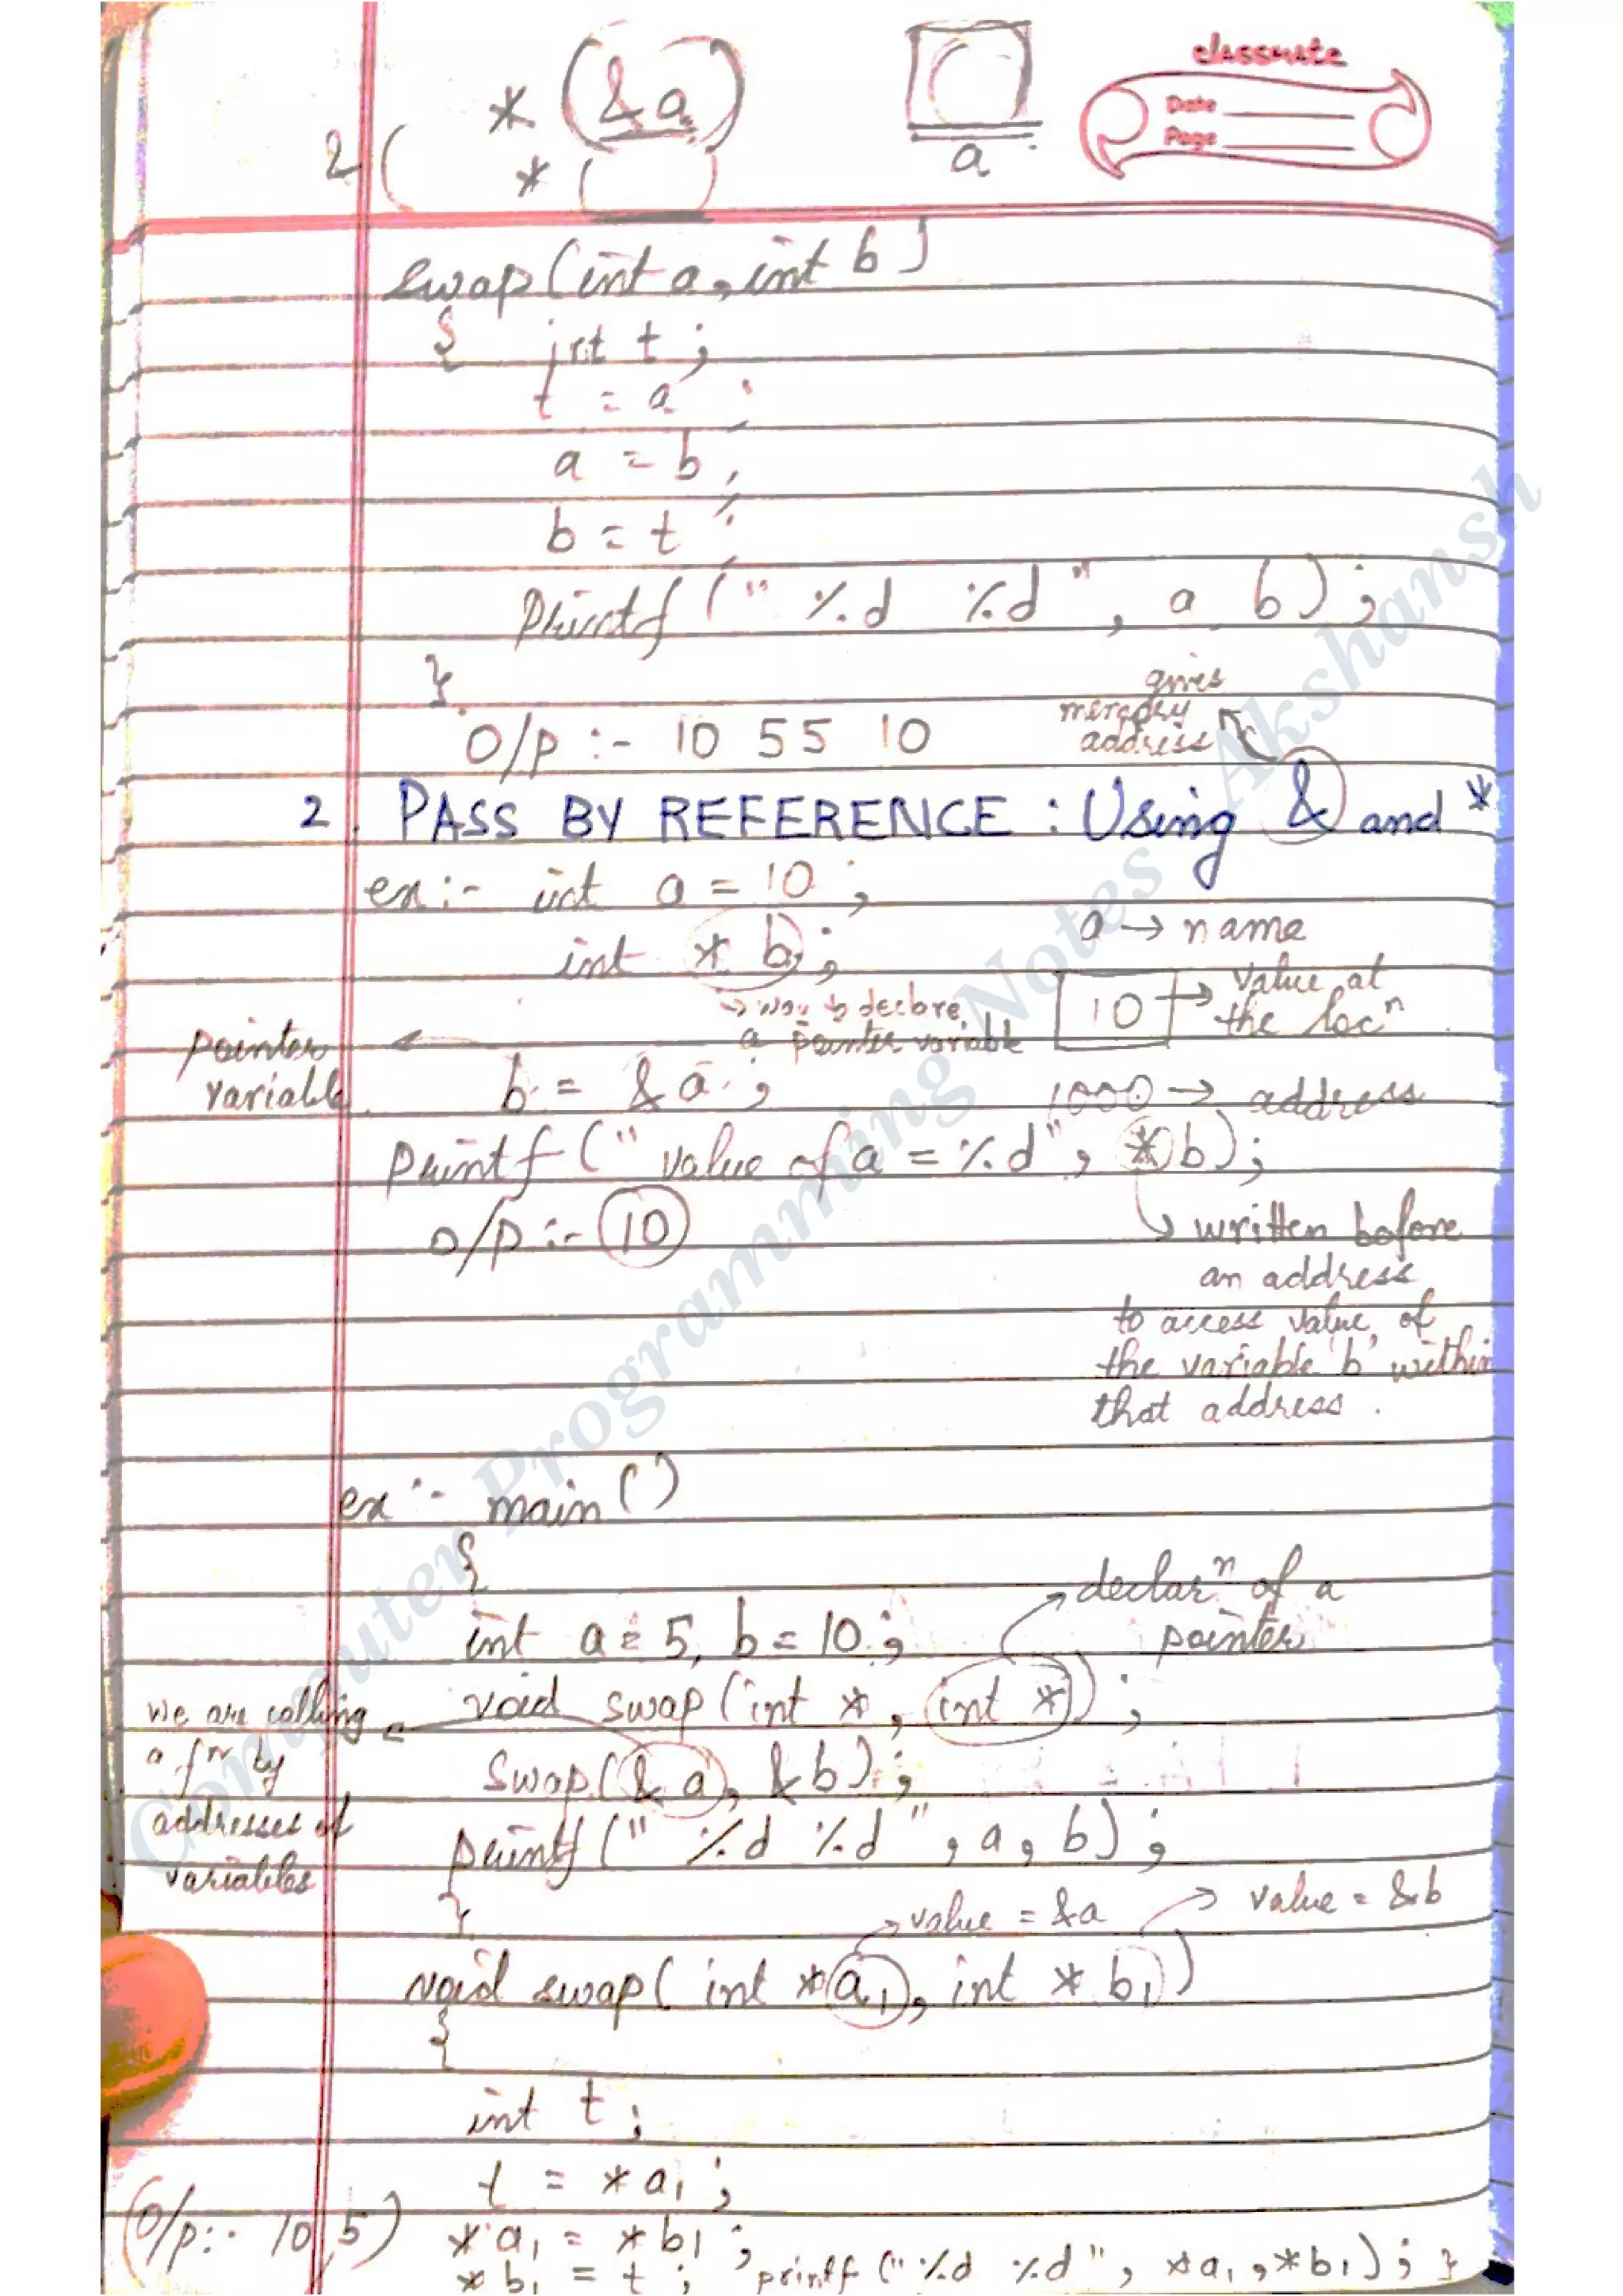 * (&a)
2( * ( )
a
classmate
Date
Page
swap(int a, int b)
{ int t ;
t = a ;
a = b ;
b = t ;
printf (" %d %d " , a b) ;
}
O/p :- 10 55 10
gives
memory
address
2. PASS BY REFERENCE : Using & and *
ex :- int a = 10 ;
int * b ;
a → name
→ way to declare
a pointer variable
10 → value at
the locⁿ
pointer
variable
b = &a ;
1000 → address
printf (" value of a = %d" , *b) ;
o/p :- 10
→ written before
an address
to access value of
the variable 'b' within
that address .
ex :- main ()
{
→ declarⁿ of a
pointer
int a = 5, b = 10 ;
void swap (int * , int *) ;
we are calling
a fⁿ by
addresses of
variables
swap(& a, &b) ;
printf (" %d %d " , a , b) ;
}
→ value = &a
→ value = &b
void swap ( int *a₁ , int * b₁)
{
int t ;
t = *a₁ ;
(O/p :- 10, 5)
*a₁ = *b₁ ;
*b₁ = t ; printf (" %d %d " , *a₁ , *b₁) ; }
Computer Programming Notes Akshansh